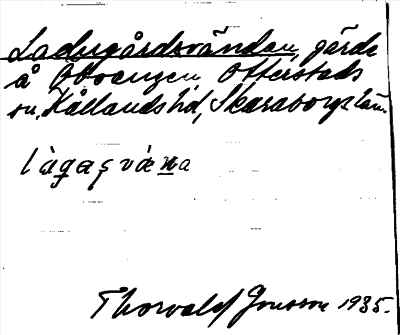 Ladugårdsvändan, gärde
å Odvången Otterstads
sn, Kållands hd, Skaraborgs län.
làgaṣvǽna
Thorvald Jonsson 1935.